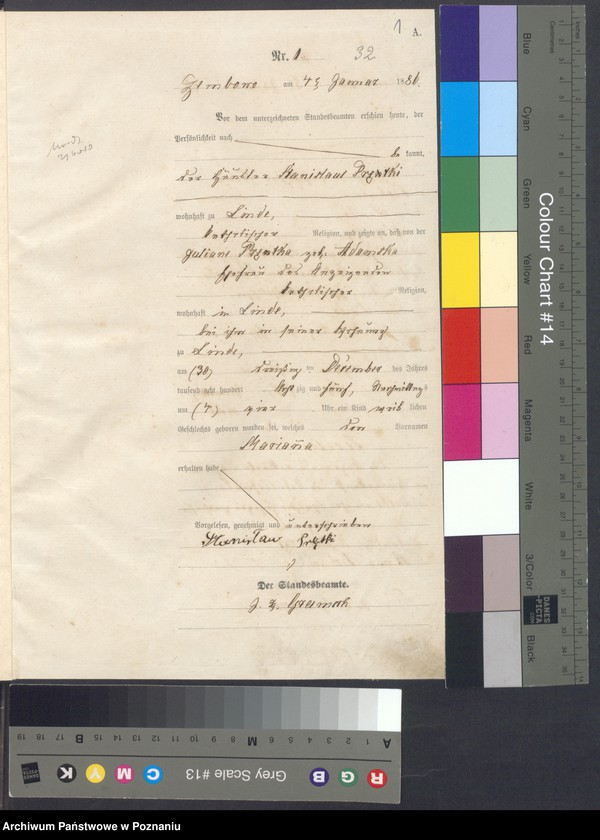 1 A.
Nr. 1. 32
am Januar 1886.
Vor dem unterzeichneten Standesbeamten erschien heute, der
Persönlichkeit nach
be kannt,
der Häusler Stanislaus
wohnhaft zu Linde,
katholischer Religion, und zeigte an, daß von der
geb. Adamska
Ehefrau des Anzeigenden
katholischer Religion,
wohnhaft in Linde,
bei ihm in seiner Wohnung
zu Linde,
am (30) dreißig ten December des Jahres
tausend acht hundert acht zig und fünf, Nachmittags
um vier Uhr ein Kind weib lichen
Geschlechts geboren worden sei, welches den Vornamen
Marianna
erhalten habe
Vorgelesen, genehmigt und unterschrieben
Stanisław
Der Standesbeamte.
Colour Chart #14
Blue
Cyan
Green
Yellow
Red
Magenta
White
3/Color
Black
Centimetres
Inches
DANES
PICTA
Grey Scale #13
A 1 2 3 4 5 6 M 8 9 10 11 12 13 14 15 B 17 18 19
R G B C M Y K
Archiwum Państwowe w Poznaniu